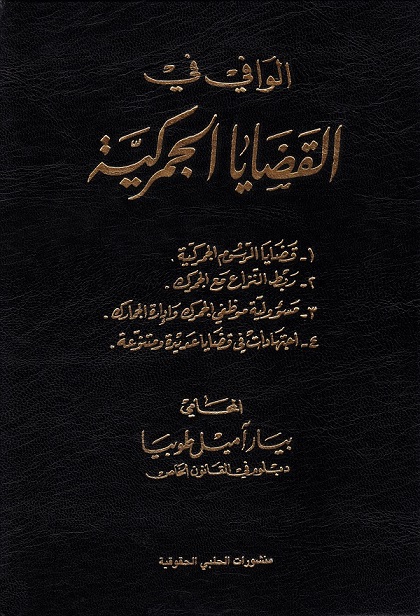 الوافي في
القضايا الجمركية
١- قضايا الرسوم الجمركية.
٢- ربط النزاع مع الجمرك.
٣- مسؤولية موظفي الجمرك وإدارة الجمارك.
٤- اجتهادات في قضايا عديدة ومتنوعة.
المحامي
بيار آميل طوبيا
دبلوم في القانون الخاص
منشورات الحلبي الحقوقية